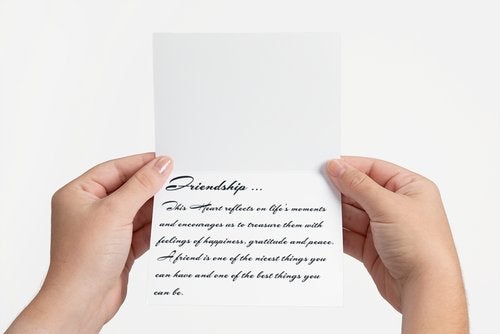 Friendship ...
This Heart reflects on life's moments
and encourages us to treasure them with
feelings of happiness, gratitude and peace.
A friend is one of the nicest things you
can have and one of the best things you
can be.